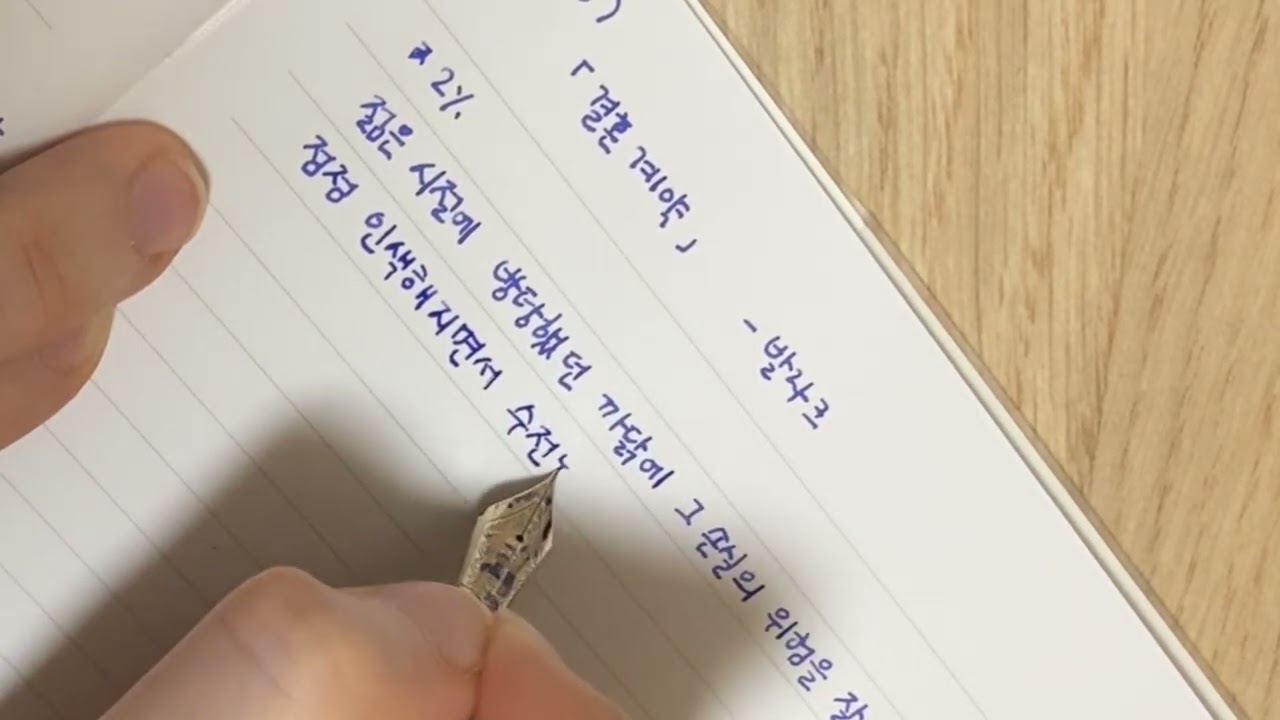 「결혼 계약」 - 발자크
* 2%.
젊은 시절에 방탕했던 까닭에 그 손실의 위험을 잘
점점 인색해지면서 수전